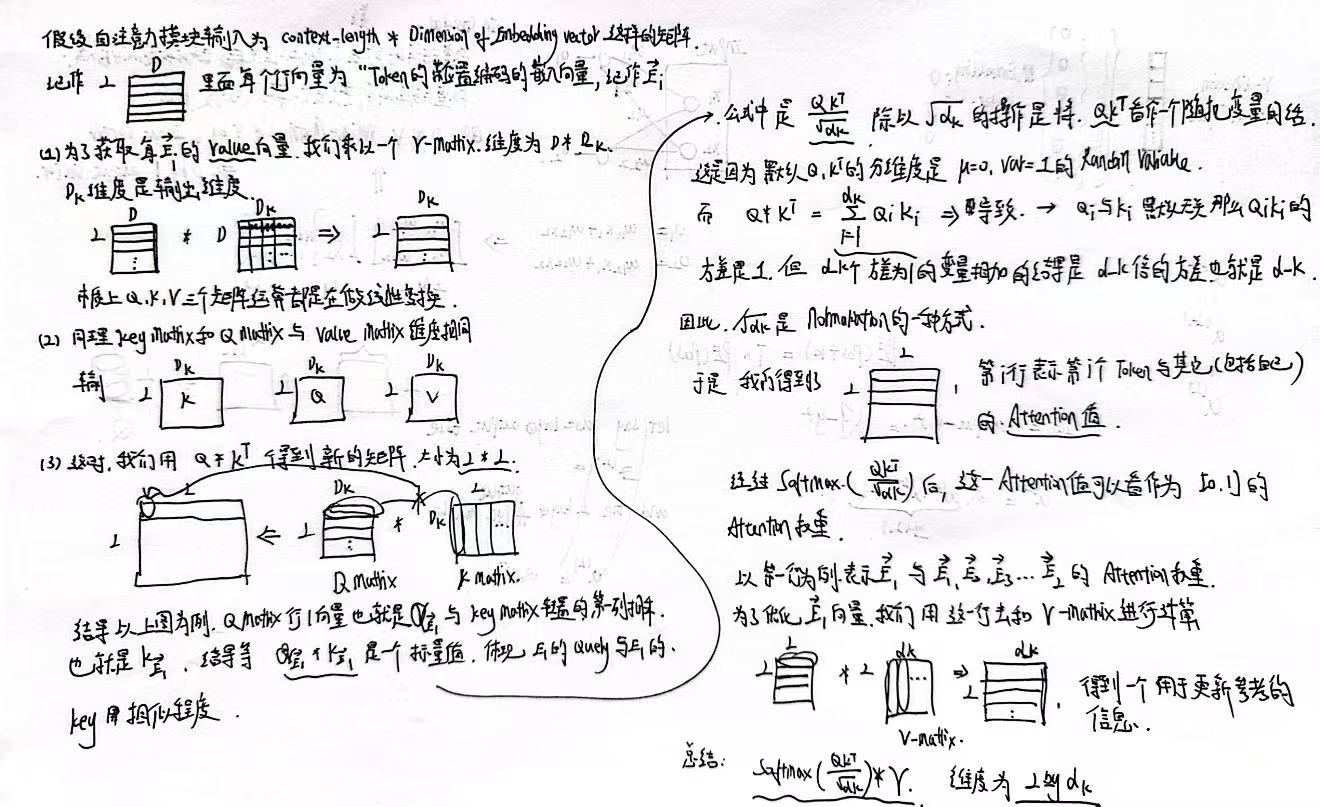 假设自注意力模块输入为 context-length * Dimension of Embedding vector 这样的矩阵.
D
记作 L 里面每个行向量为 "Token的带位置编码的嵌入向量, 记作 E⃗i
(1) 为了获取每E⃗i的 Value向量. 我们乘以一个 V-Matix. 维度为 D * Dk.
Dk 维度是输出维度.
D Dk Dk
L * D ⇒ L
本质上 Q, K, V 三个矩阵运算都是在做线性变换.
(2) 同理 key Matix和 Q Matix 与 Value Matix 维度相同
Dk Dk Dk
输 L K L Q L V
(3) 这时, 我们用 Q * K^T 得到新的矩阵. 大小为 L * L.
L Dk L
L ⇐ L * Dk ...
Q mathix K mathix.
结果以上图为例. Q Mathix 行1向量也就是 Q_E⃗1 与 key mathix 转置的第一列相乘.
也就是 K_E⃗1. 结果等 Q_E⃗1 * K_E⃗1 是一个标量值. 体现 E1 的 Query 与 E1 的.
key 相似程度.
公式中是 QK^T/√dk 除以 √dk 的操作是将. QK^T 看作一个随机变量的结.
这是因为默认 Q, K^T 的分维度是 μ=0, var=1 的 Random Variable.
而 Q * K^T = Σ(i=1..dk) Qi Ki ⇒ 导致. → Qi 与 Ki 默认无关 那么 QiKi 的
方差是 1. 但 d_k个 方差为1的变量相加的结果是 d_k 倍的方差也就是 d_k.
因此. √dk 是 Normalation 的一种方式.
L
于是 我们得到 L , 第i行表示第i个 Token 与其它(包括自己)
的 Attention 值.
经过 Softmax. (QK^T/√dk) 后, 这一 Attention 值可以看作为 [0, 1] 的
Attention 权重.
以第一行为例. 表示 E⃗1 与 E⃗1, E⃗2, E⃗3 ... E⃗L 的 Attention 权重.
为了优化 E⃗1 向量. 我们用这一行去和 V-mathix 进行计算
L dk dk
L * L ... ⇒ L , 得到一个用于更新参考的
信息.
V-mathix.
总结: Softmax (QK^T/√dk) * V. 维度为 L by dk